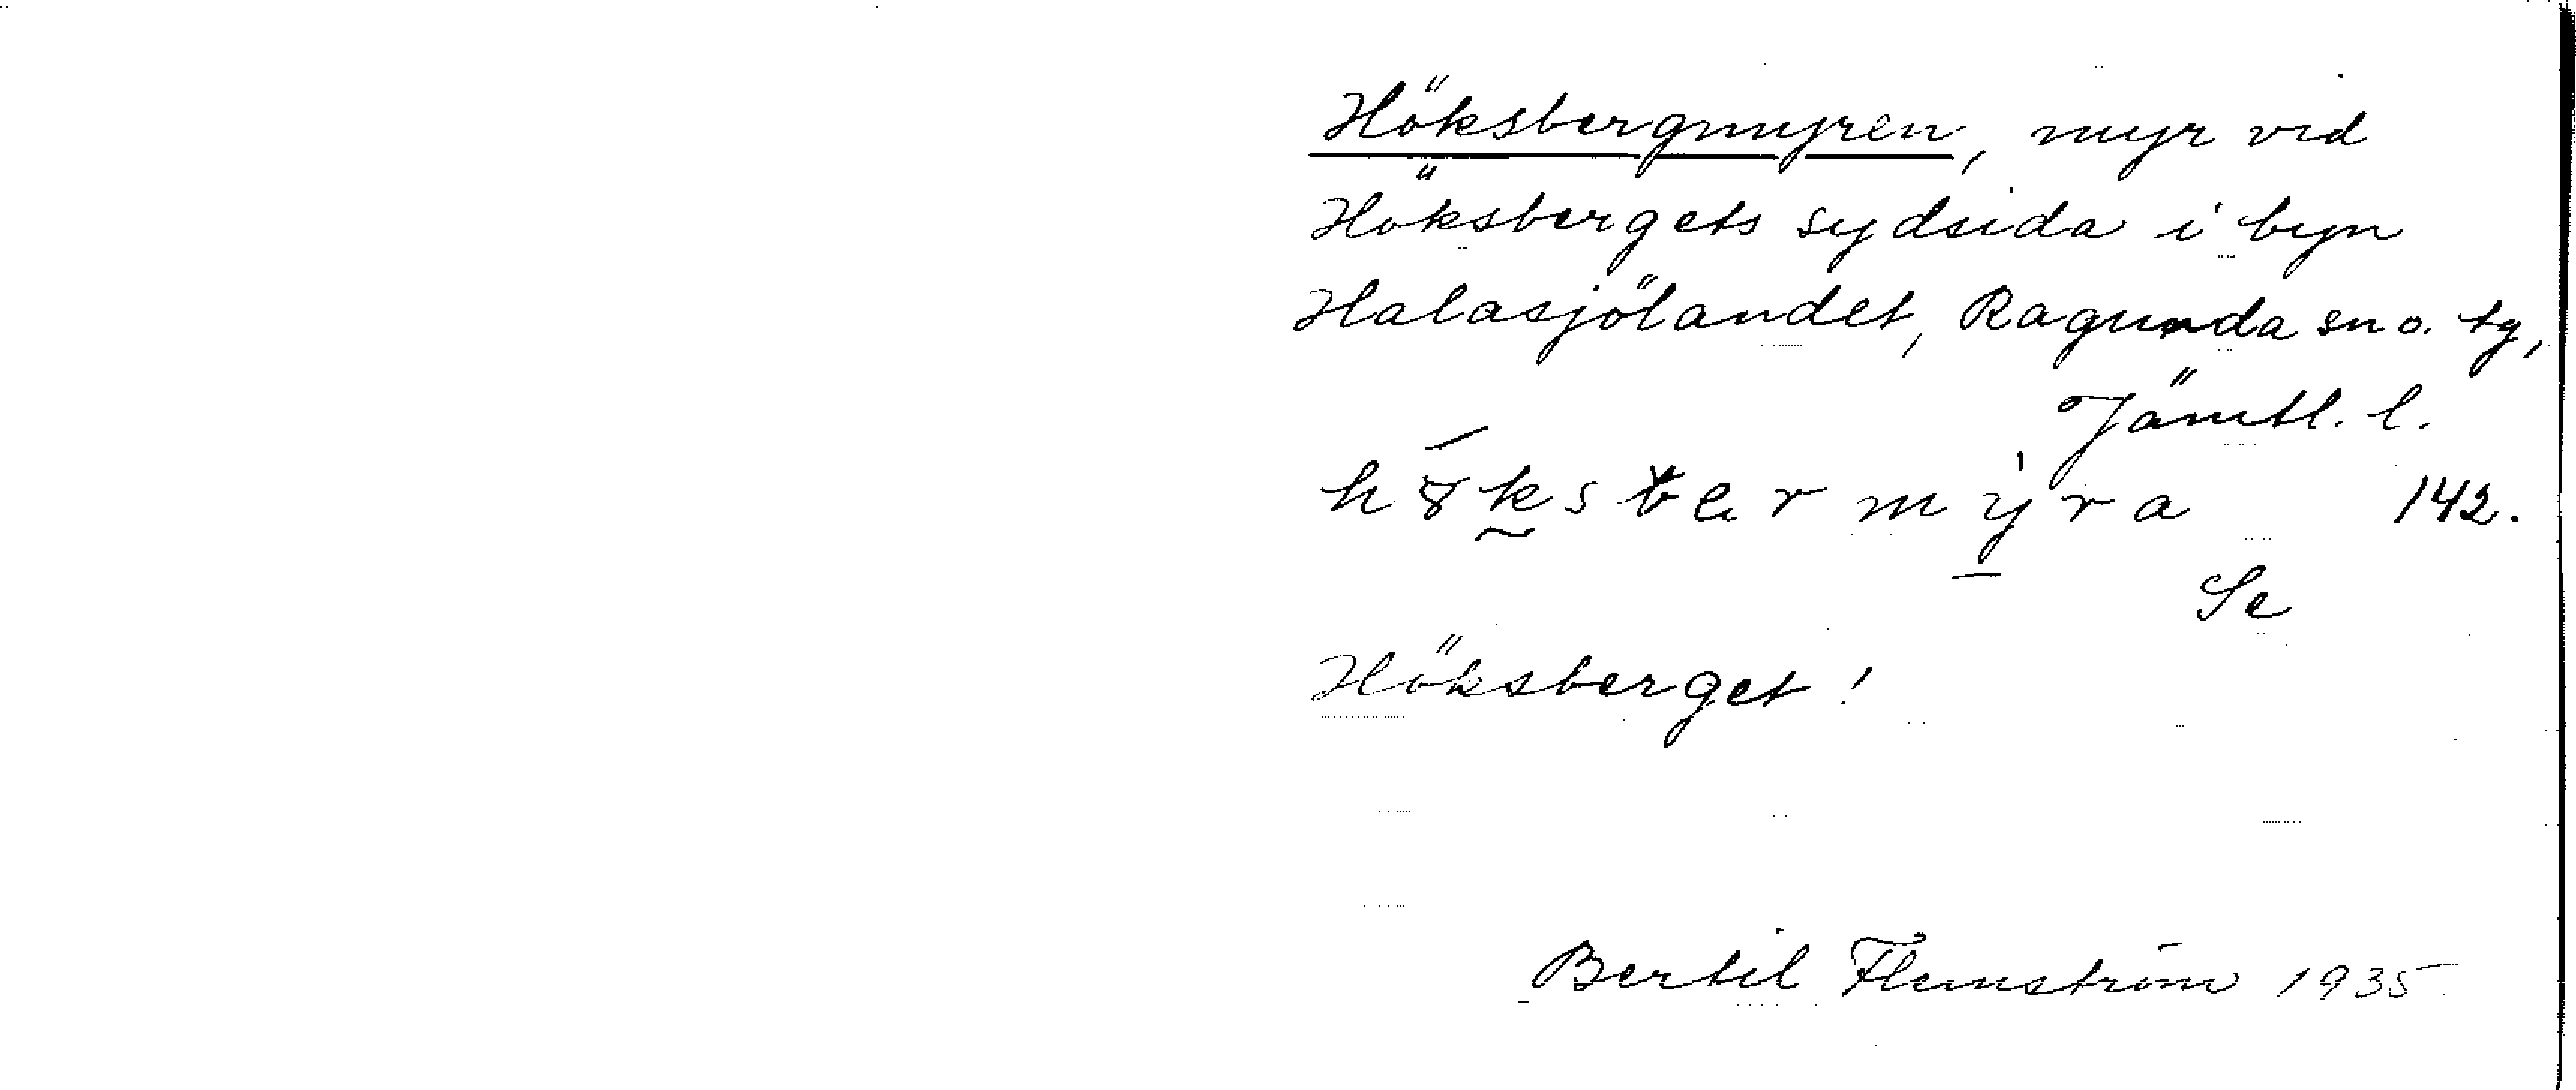 Höksbergmyren, myr vid
Höksbergets sydsida i byn
Halasjölandet, Ragunda sn o. tg,
Jämtl. l.
142.
Se
Höksberget!
Bertil Flemström 1935